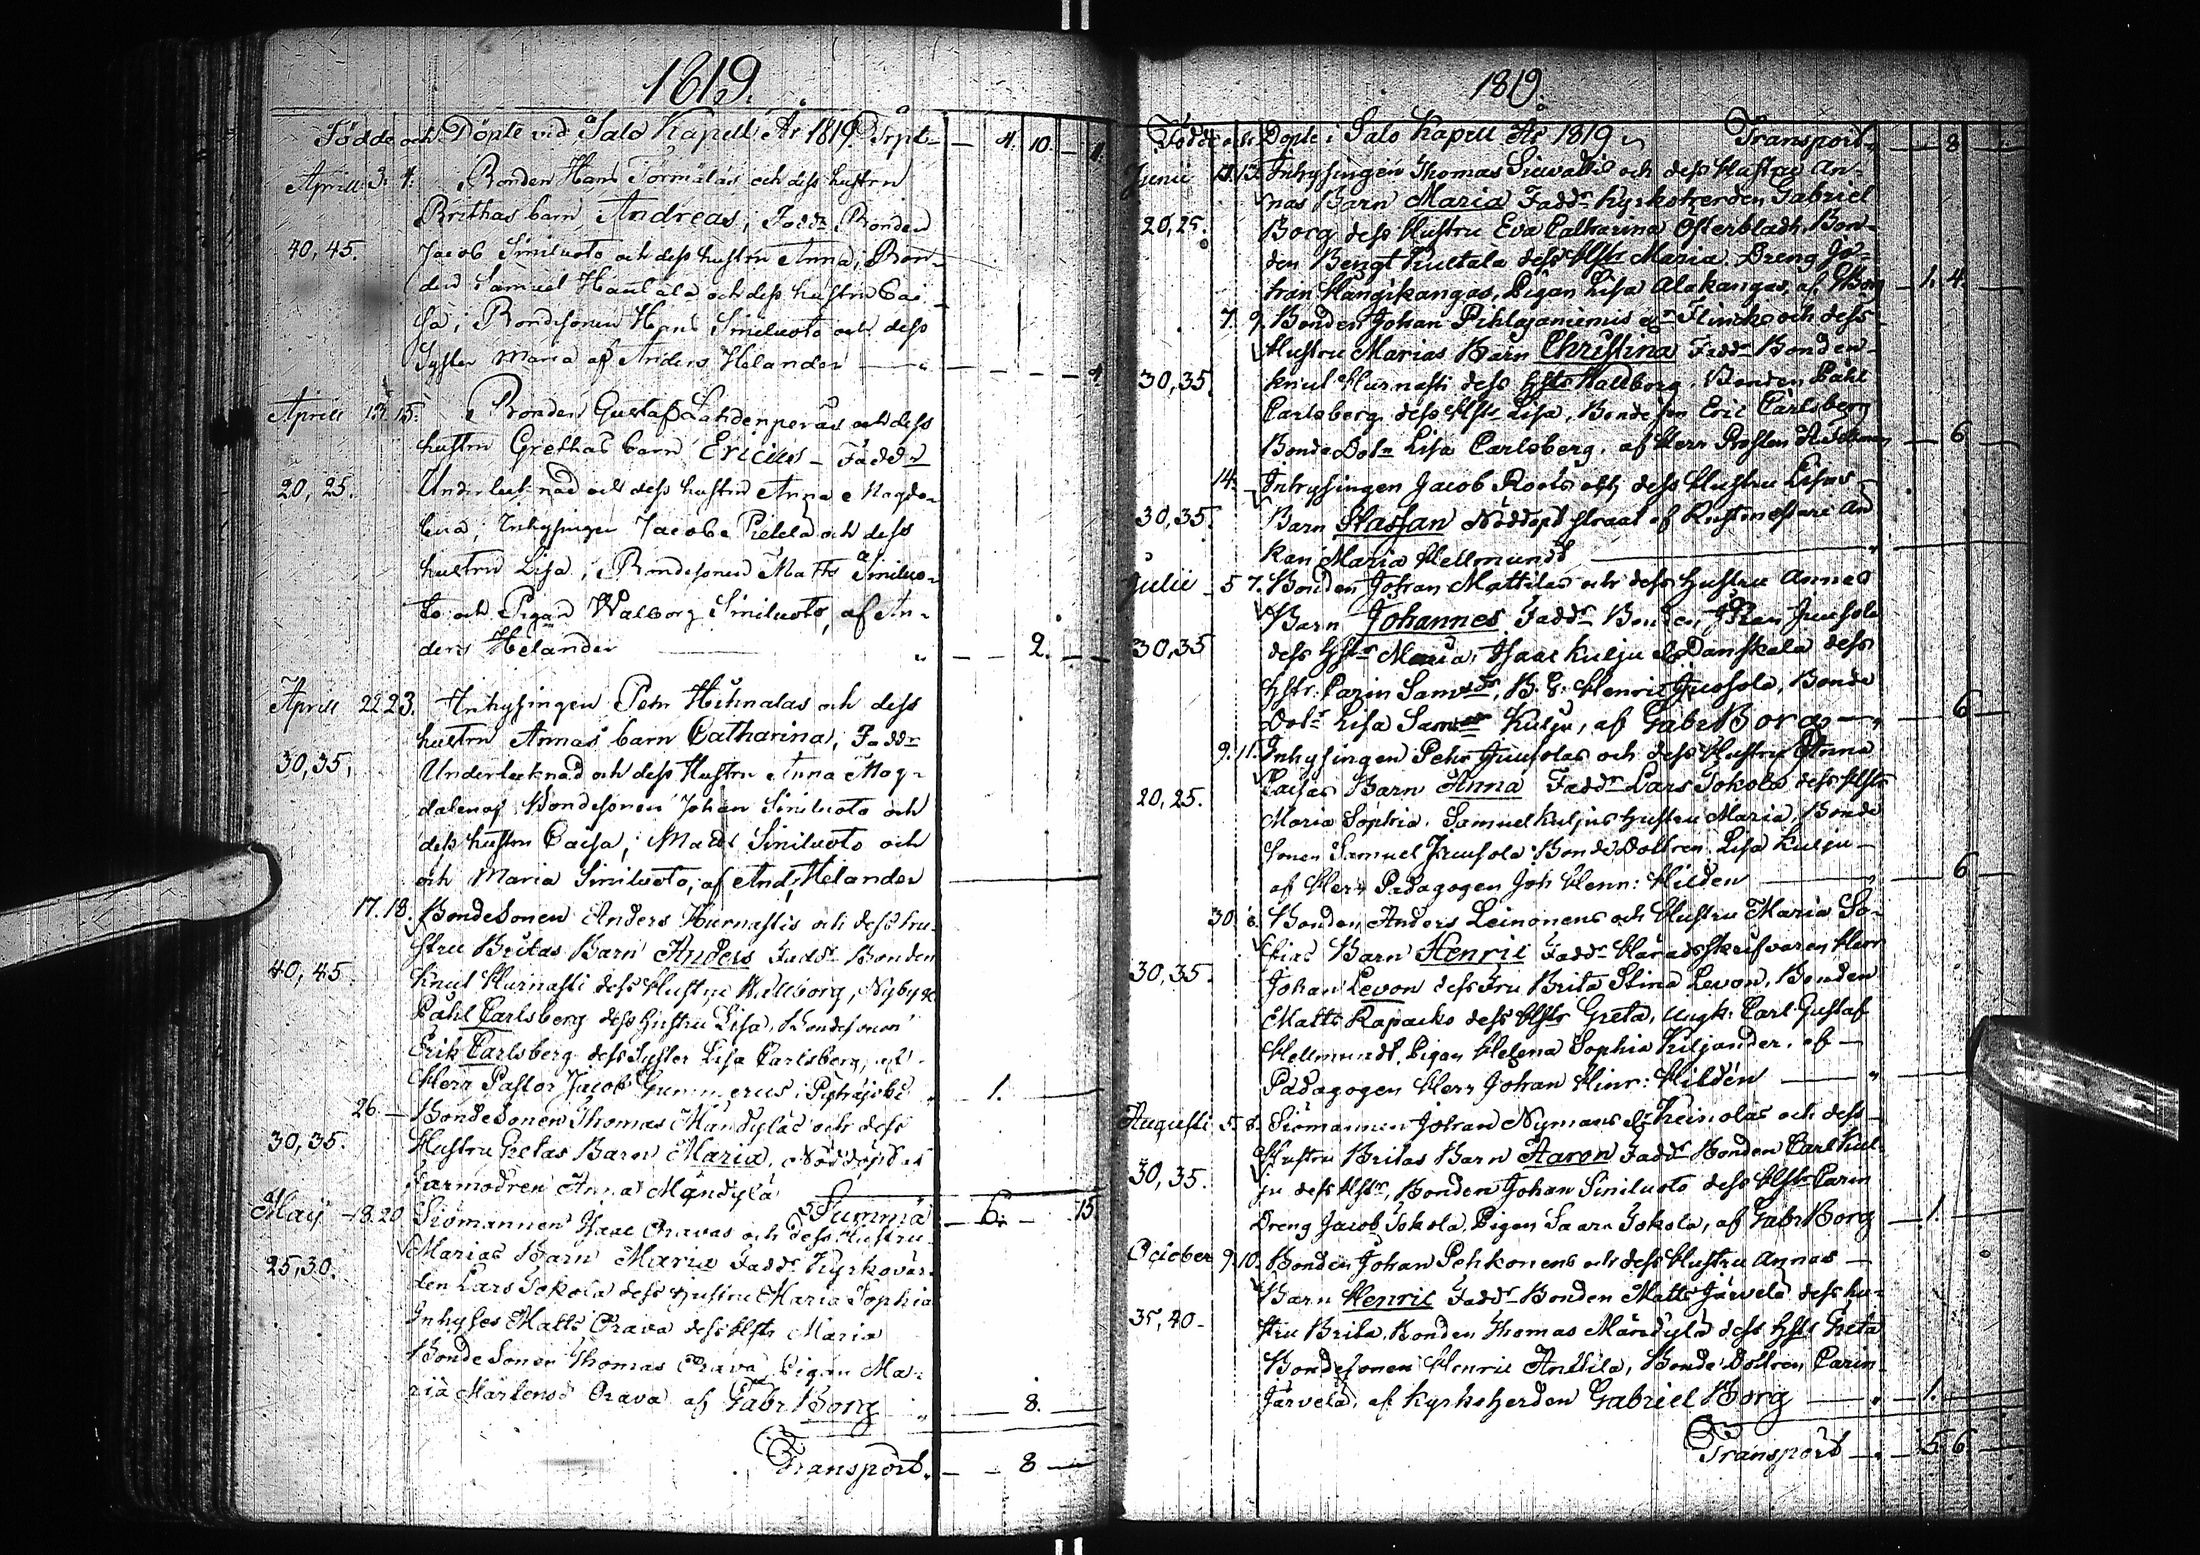 1819.
Födde och Döpte vid Salo Kapell År 1819. — 4. 10. —
Aprill 3. 4. Bonden Hans Törmälas och dess hustru
Brithas barn Andreas; Faddr Bonden
40, 45. Jacob Siniluoto och dess hustru Anna; Bon-
den Samuel och dess hustru Cai-
sa; Bondesonen Hans Siniluoto och dess
Syster Maria af Anders Helander — 4.
Aprill 13. 15. Bonden Gustaf Lahdenperäs och dess
hustru Grethas barn Ericus — Faddr
20, 25. Underteknad och dess hustru Anna Magda-
lena; Inhysingen Jacob Pietilä och dess
hustru Lisa; Bondesonen Matts Siniluo-
to och Pigan Walborg Siniluoto, af An-
ders Helander — 2. —
Aprill 22 23. Inhysingen Petr Hihnalas och dess
hustru Annas barn Catharina; Faddr
30, 35. Underteknad och dess Hustru Anna Mag-
dalena; Bondesonen Johan Siniluoto och
dess hustru Caisa; Matts Siniluoto och
och Maria Siniluoto; af And. Helander
17. 18. BondeSonen Anders Hurnastis och dess hu-
stru Britas Barn Anders Faddr Bonden
40, 45 Knut Hurnasti dess Hustru Wallborg, Nybygg
Påhl Carlsberg dess Hustru Lisa, Bondesonen
Erik Carlsberg dess Syster Lisa Carlsberg, af
Herr Pastor Jacob Gummerus i Pyhäjoki — 1. —
26. — BondeSonen Thomas Mändyläs och dess
30, 35. Hustru Gretas Barn Maria, Nöddöpt af
Farmodren Anna Mändylä
Summa — 6. — 15.
Maij — 18. 20 Siömannen Isaac Oravas och dess Hustru
Marias Barn Maria Faddr Kyrkovär-
25, 30. den Lars Jokola dess Hustru Maria Sophia
Inhyses Matts Orava dess Hstr Maria
BondeSonen Thomas Orava Pigan Ma-
ria Mårtensd Orava af Gabr. Borg — 8. —
Transport. — 8 —
1819.
Födde och Döpte i Salo Kapell År 1819 Transport — 8
Junii 13. Inhysingen Thomas Siuvattis och dess Hustru An-
nas Barn Maria Faddr Kyrkoherden Gabriel
20, 25. Borg dess Hustru Eva Catharina Österbladh, Bon-
den Bengt Kultala dess Hstr Maria. Dreng Jo-
han Kangikangas, Pigan Lisa Alakangas, af G Borg — 1. 4. —
7. 9. Bonden Johan Pihlajaniemis Flinck och dess
Hustru Marias Barn Christina Faddr Bonden
30, 35. Knut Hurnasti dess Hstr Wallborg. Bonden Påhl
Carlsberg dess Hstr Lisa, Bondeson Eric Carlsberg
BondeDotr Lisa Carlsberg. af Herr Prosten — 6 —
14. — Inhysingen Jacob Roos och dess Hustru Lisas
30, 35. Barn Staffan Nöddöpt straxt af Rustmästare
kan Maria Hellmundt —
Julii 5 7. Bonden Johan Mattilas och dess Hustru Annas
Barn Johannes Faddr Bonden Johan Juusola
30, 35 dess Hstr Maria, Isaac Kulju el. Danskala dess
Hstr. Carin Samsdr, B. S: Henric Juusola, Bonde
Dotr Lisa Kulju, af Gabr Borg — 6 —
9. 11. Inhysingen Pehr Juusolas och dess Hustru Anna
Caisas Barn Anna Faddr Lars Jokola dess Hstr
20, 25. Maria Sophia. Samuel Kuljus Hustru Maria, Bonde
Sonen Samuel Juusola BondeDottren Lisa Kulju —
af Herr Pædagogen Joh Henr: Hildén — 6 —
30. Bonden Anders Leinonens och Hustru Maria So-
fias Barn Henric Faddr Häradsskrifvaren Herr
30, 35. Johan Levon dess Fru Brita Stina Levon, Bonden
Matts Kapacko dess Hstr Greta, Ungk: Carl Gustaf
Hellmundt, Pigan Helena Sophia Kiljander. af —
Pædagogen Herr Johan Hinr: Hildén —
Augusti 5. 8. Siömannen Johan Nymans el. Heinolas och dess
Hustru Britas Barn Aaron Faddr Bonden Carl Kul-
30, 35. ju dess Hstr, Bonden Johan Siniluoto dess Hstr Carin
Dreng Jacob Jokola Pigan Saara Jokola, af Gabr Borg — 1. —
October 9. 10. Bonden Johan Pehkonens och dess Hustru Annas —
Barn Henric Faddr Bonden Matts Järvelä dess hu-
35, 40 — stru Brita, Bonden Thomas Mändylä dess Hstr Greta
Bondesonen Henric Anttila, BondeDottren Carin
Järvelä, af Kyrkoherden Gabriel Borg — 1. —
Transport — 5. 6. —